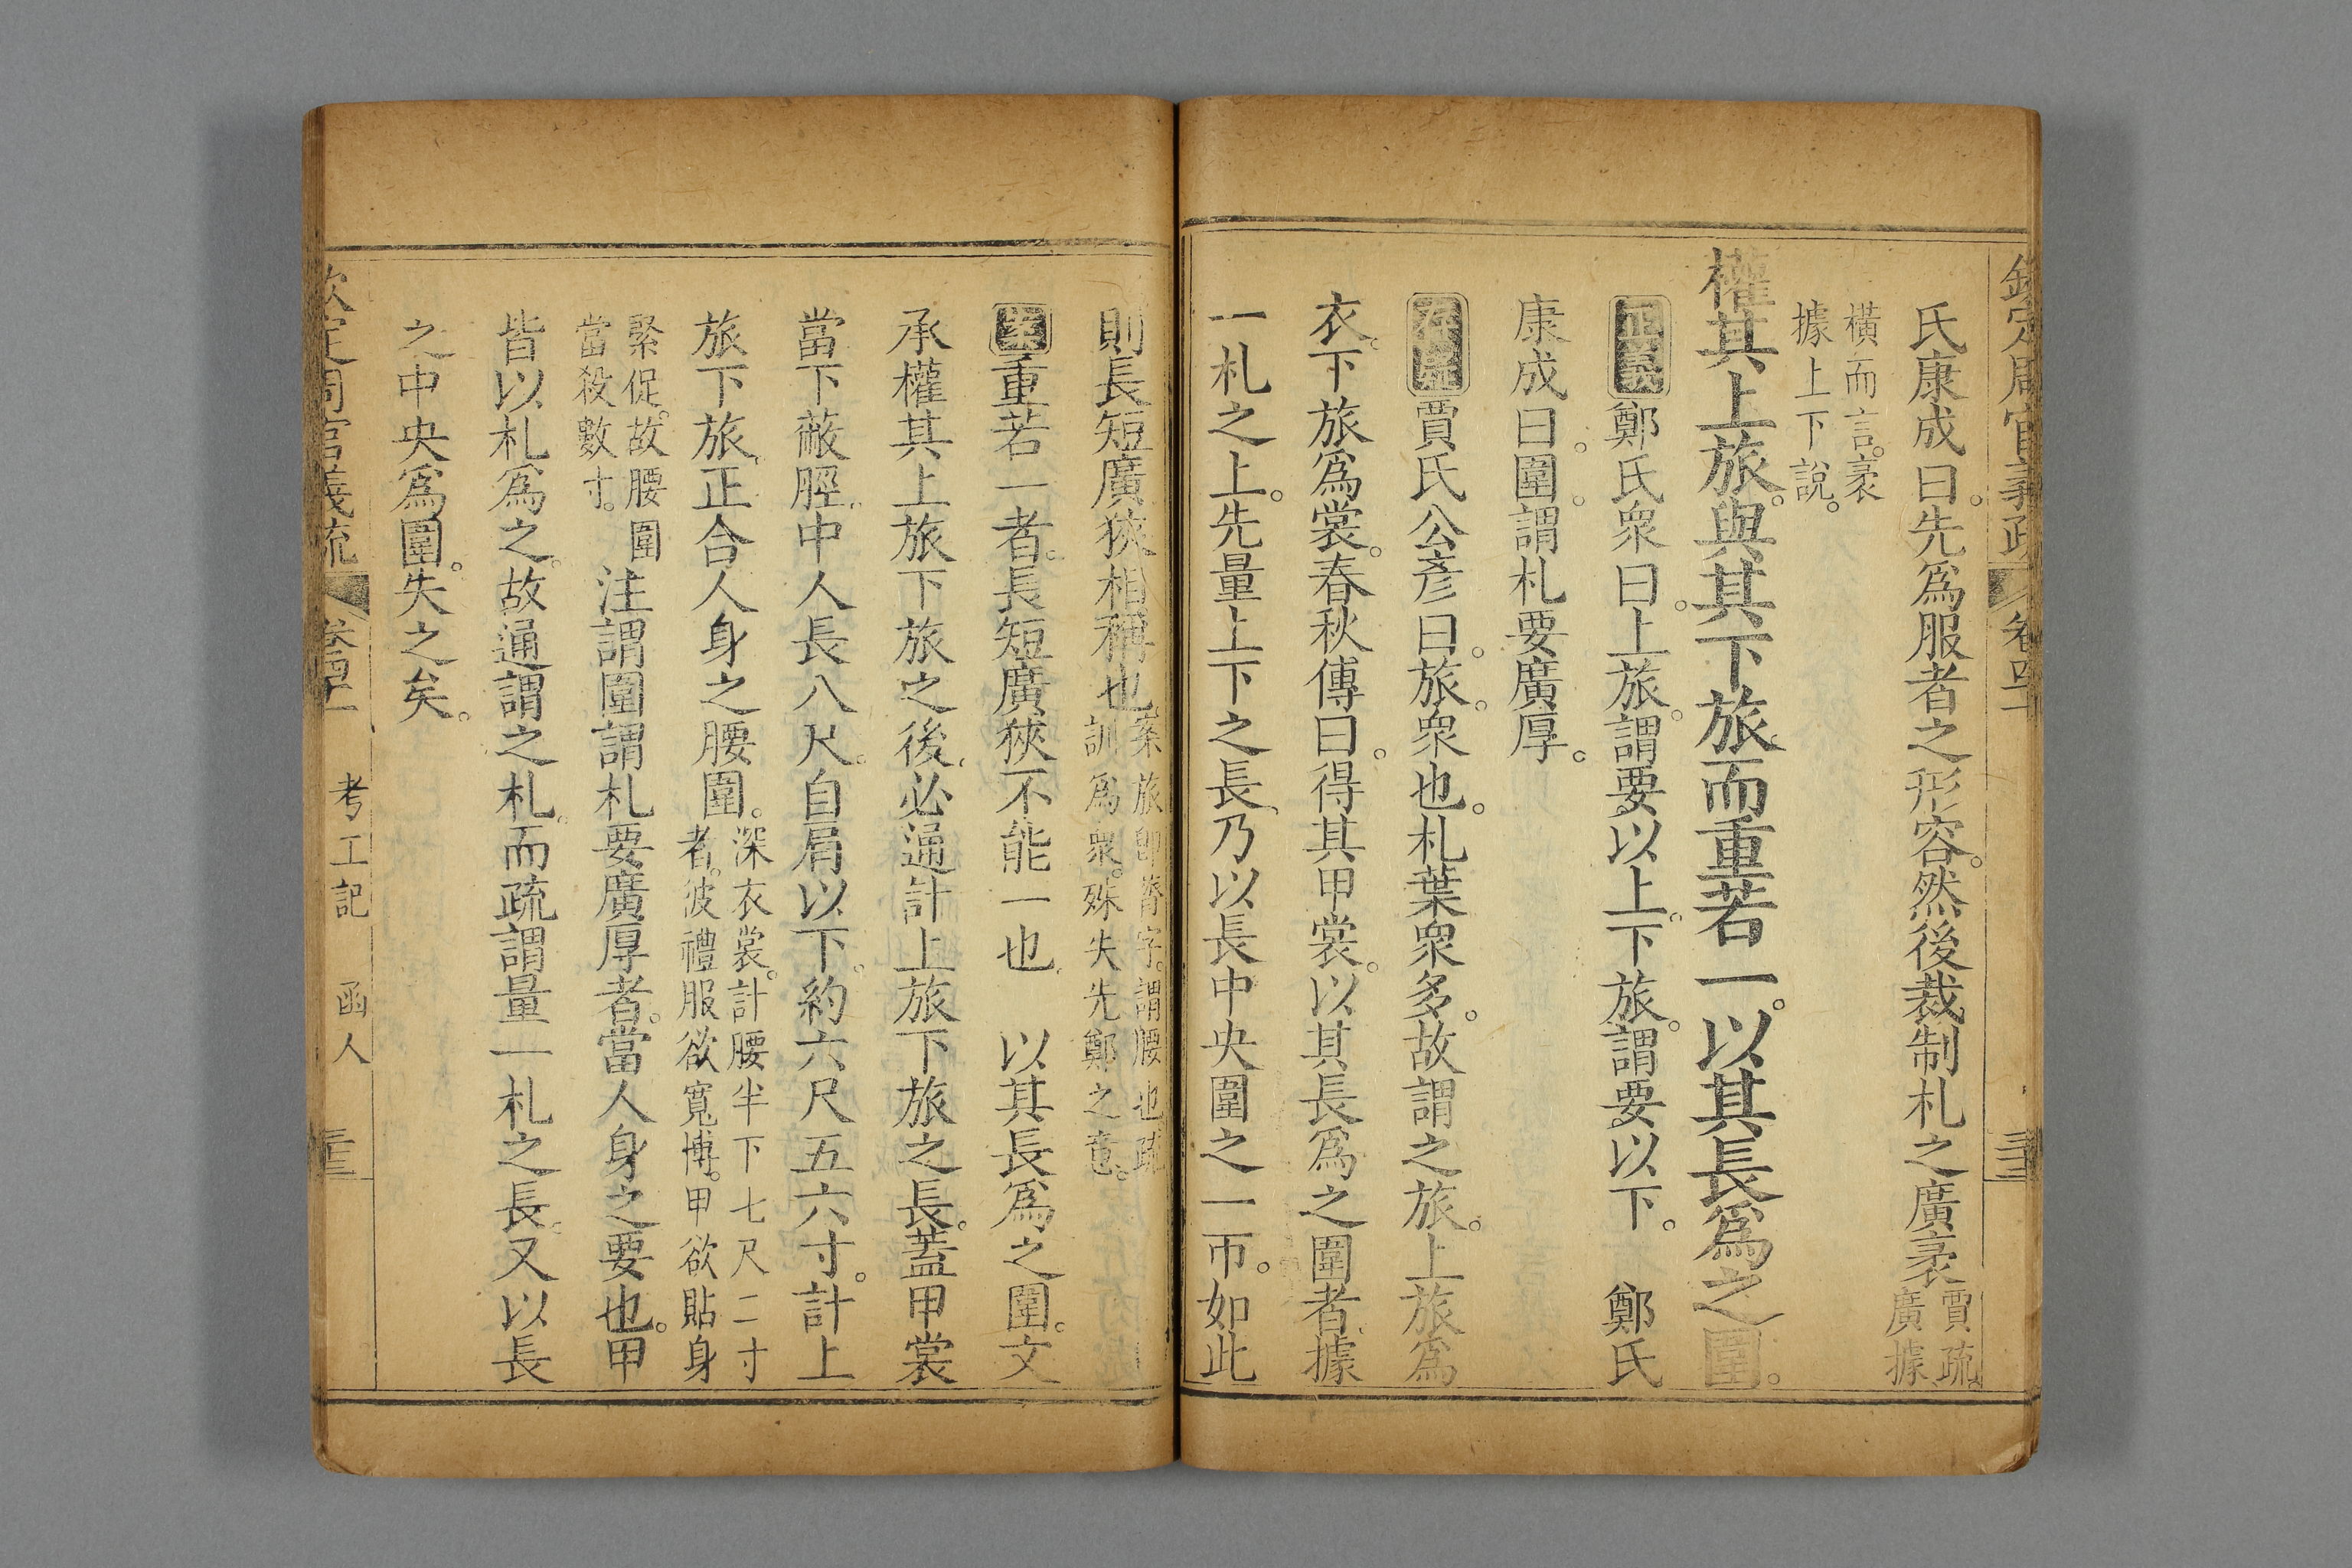 欽定周官義疏 卷四十一
氏康成曰。先爲服者之形容。然後裁制札之廣袤賈疏。廣據
橫而言。袤據上下說。
權其上旅。與其下旅。而重若一。以其長爲之圍。
正義鄭氏衆曰。上旅。謂要以上。下旅。謂要以下。 鄭氏
康成曰。圍。謂札要廣厚。
存疑賈氏公彥曰。旅。衆也。札葉衆多。故謂之旅。上旅爲
衣。下旅爲裳。春秋傳曰。得其甲裳。以其長爲之圍者、據
一札之上。先量上下之長、乃以長中央圍之一帀。如此
則長短廣狹相稱也。案旅卽膂字。謂腰也疏訓爲衆。殊失先鄭之意。
案重若一者。長短廣狹不能一也、 以其長爲之圍。文
承權其上旅下旅之後、必通計上旅下旅之長。蓋甲裳
當下蔽脛、中人長八尺。自肩以下。約六尺五六寸。計上
旅下旅、正合人身之腰圍。深衣裳。計腰半下七尺二寸者。彼禮服欲寬博。甲欲貼身
緊促。故腰圍當殺數寸。注謂圍謂札要廣厚者。當人身之要也。甲
皆以札爲之。故通謂之札。而疏謂量一札之長。又以長
之中央爲圍。失之矣。
欽定周官義疏 卷四十一 考工記 函人 三十三